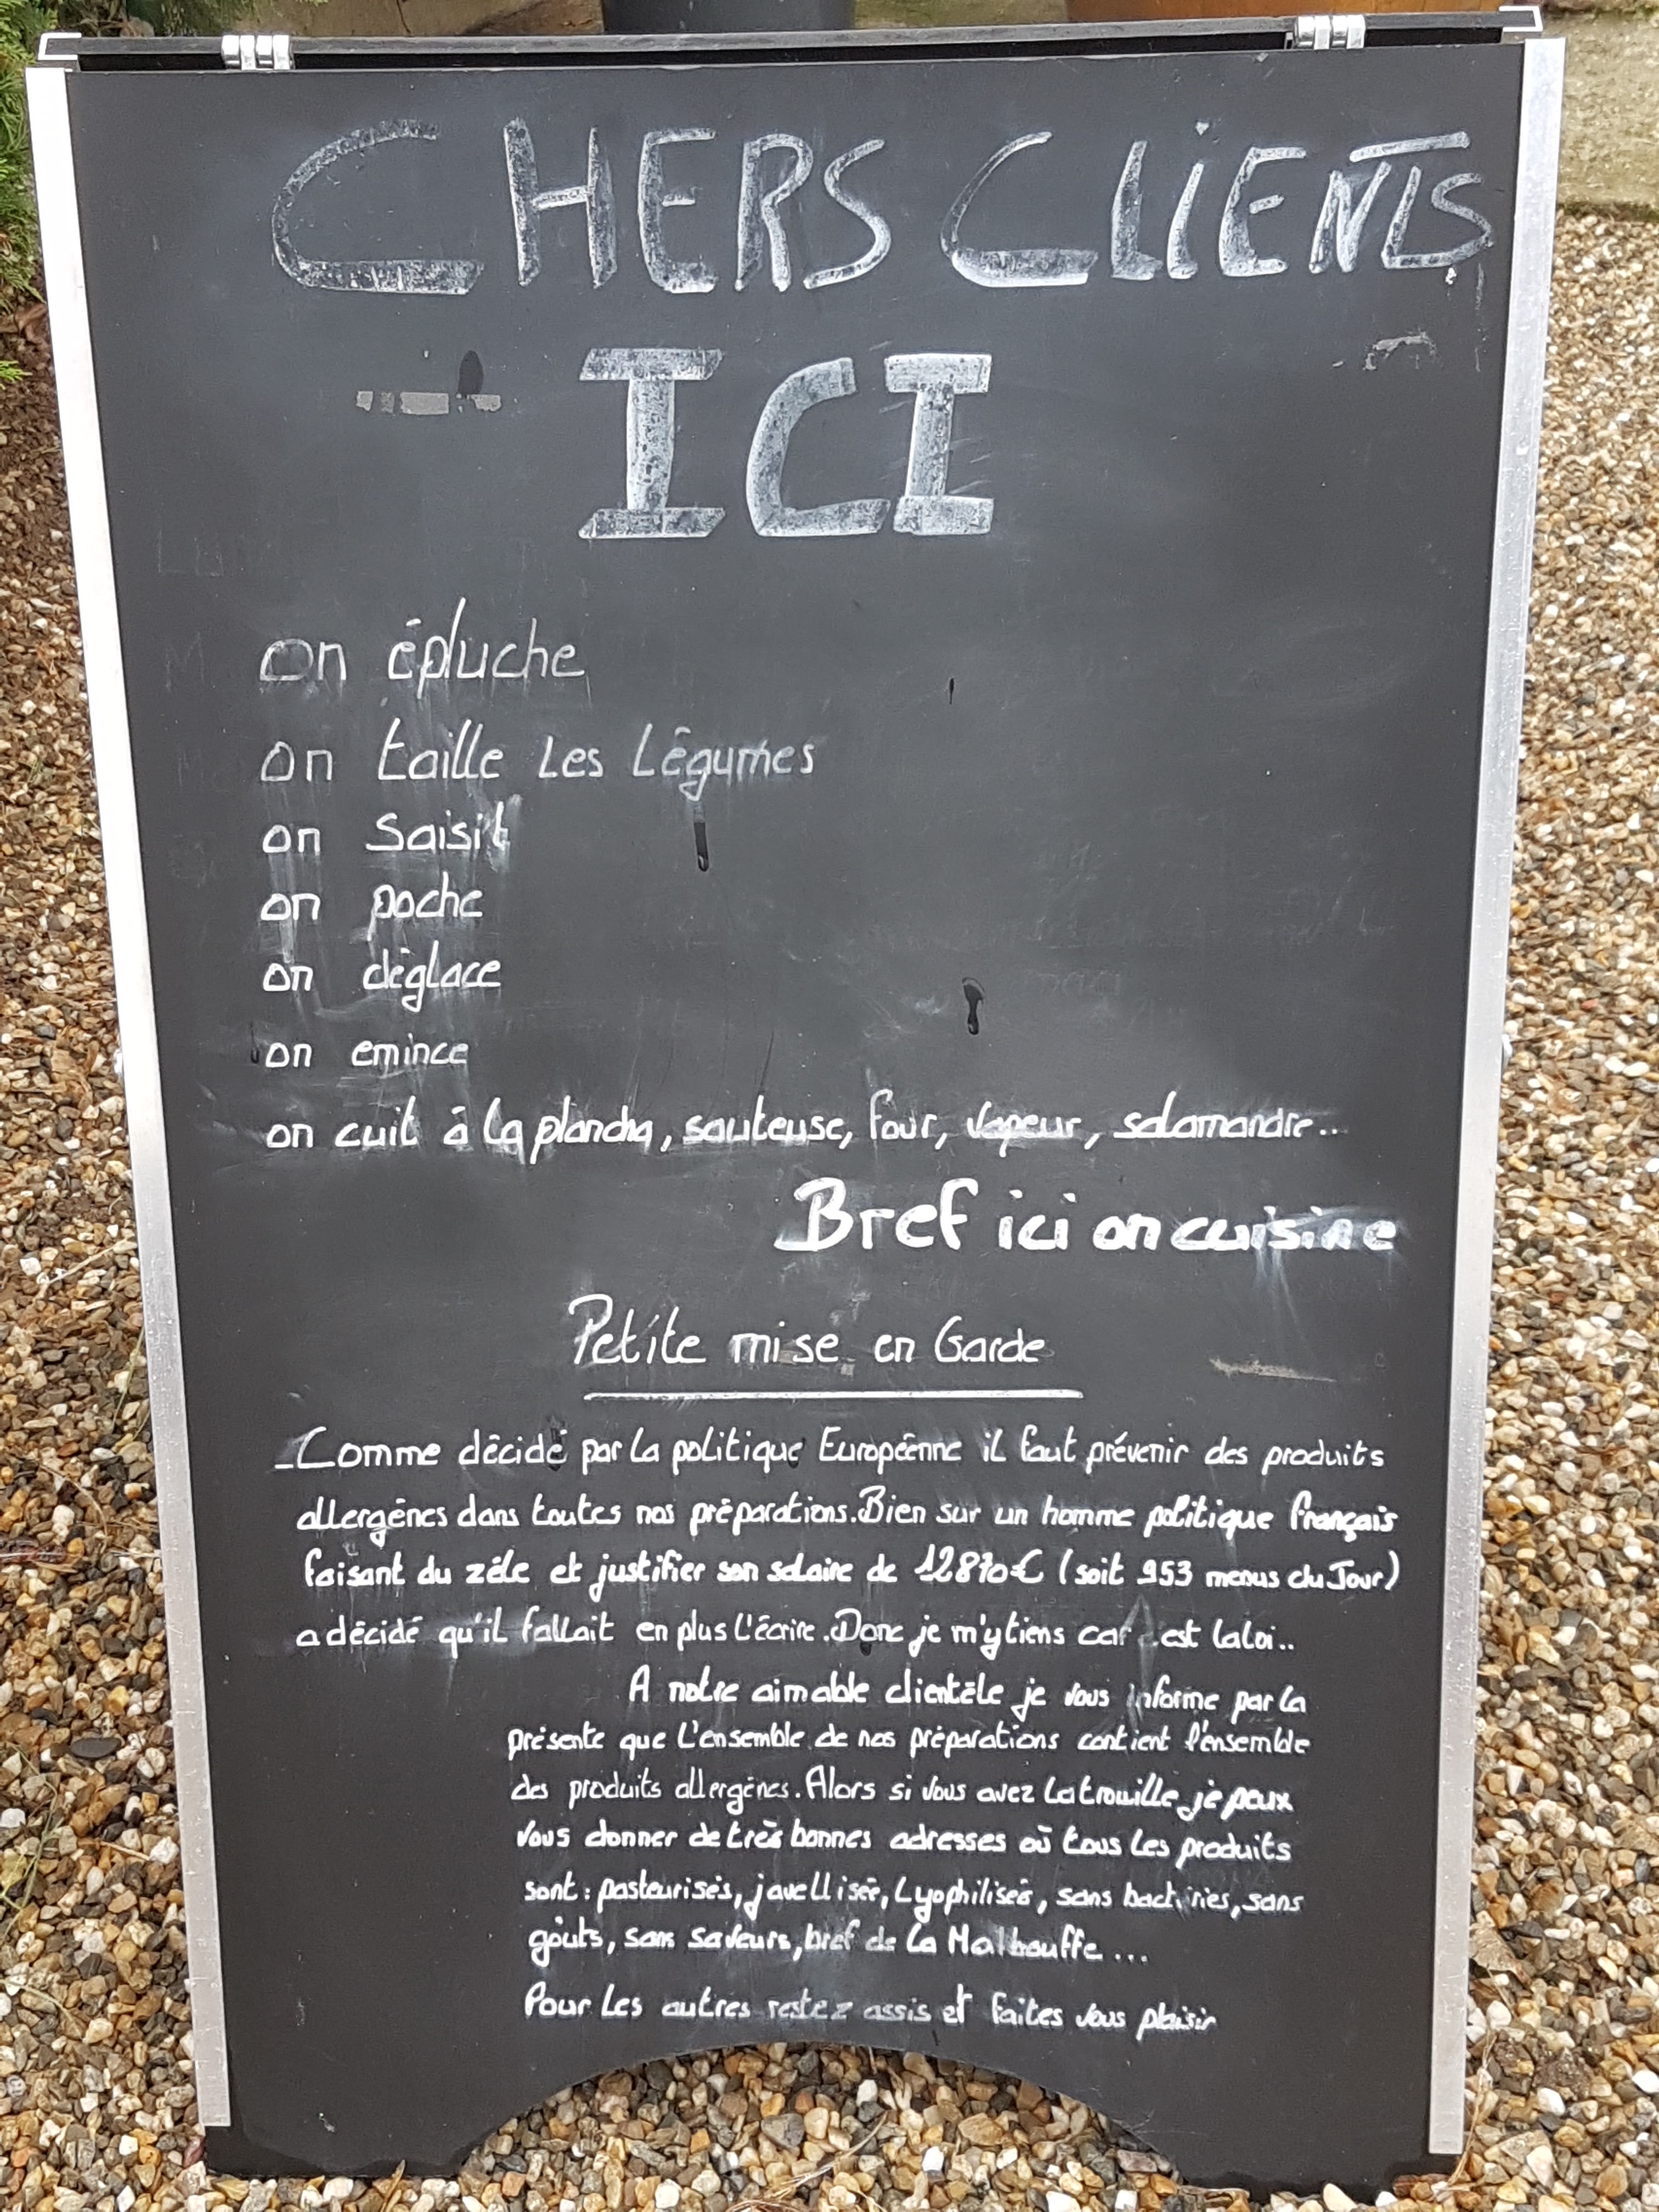 CHERS CLIENTS
ICI
on épluche
on taille les légumes
on saisit
on poche
on déglace
on emince
on cuit à la plancha, sauteuse, four, vapeur, salamandre..
Bref ici on cuisine
Petite mise en Garde
-Comme décidé par la politique Européenne il faut prévenir des produits
allergènes dans toutes nos préparations. Bien sur un homme politique français
faisant du zéle et justifier son salaire de 12870€ (soit 953 menus du Jour)
a décidé qu'il fallait en plus l'écrire. Donc je m'y tiens car est la loi..
A notre aimable clientèle je vous informe par la
présente que l'ensemble de nos préparations contient l'ensemble
des produits allergènes. Alors si vous avez la trouille je peux
vous donner de très bonnes adresses où tous les produits
sont : pasteurisés, javellisée, Lyophilisés, sans bactéries, sans
goûts, sans saveurs, bref de la Malbouffe ...
Pour les autres restez assis et faites vous plaisir